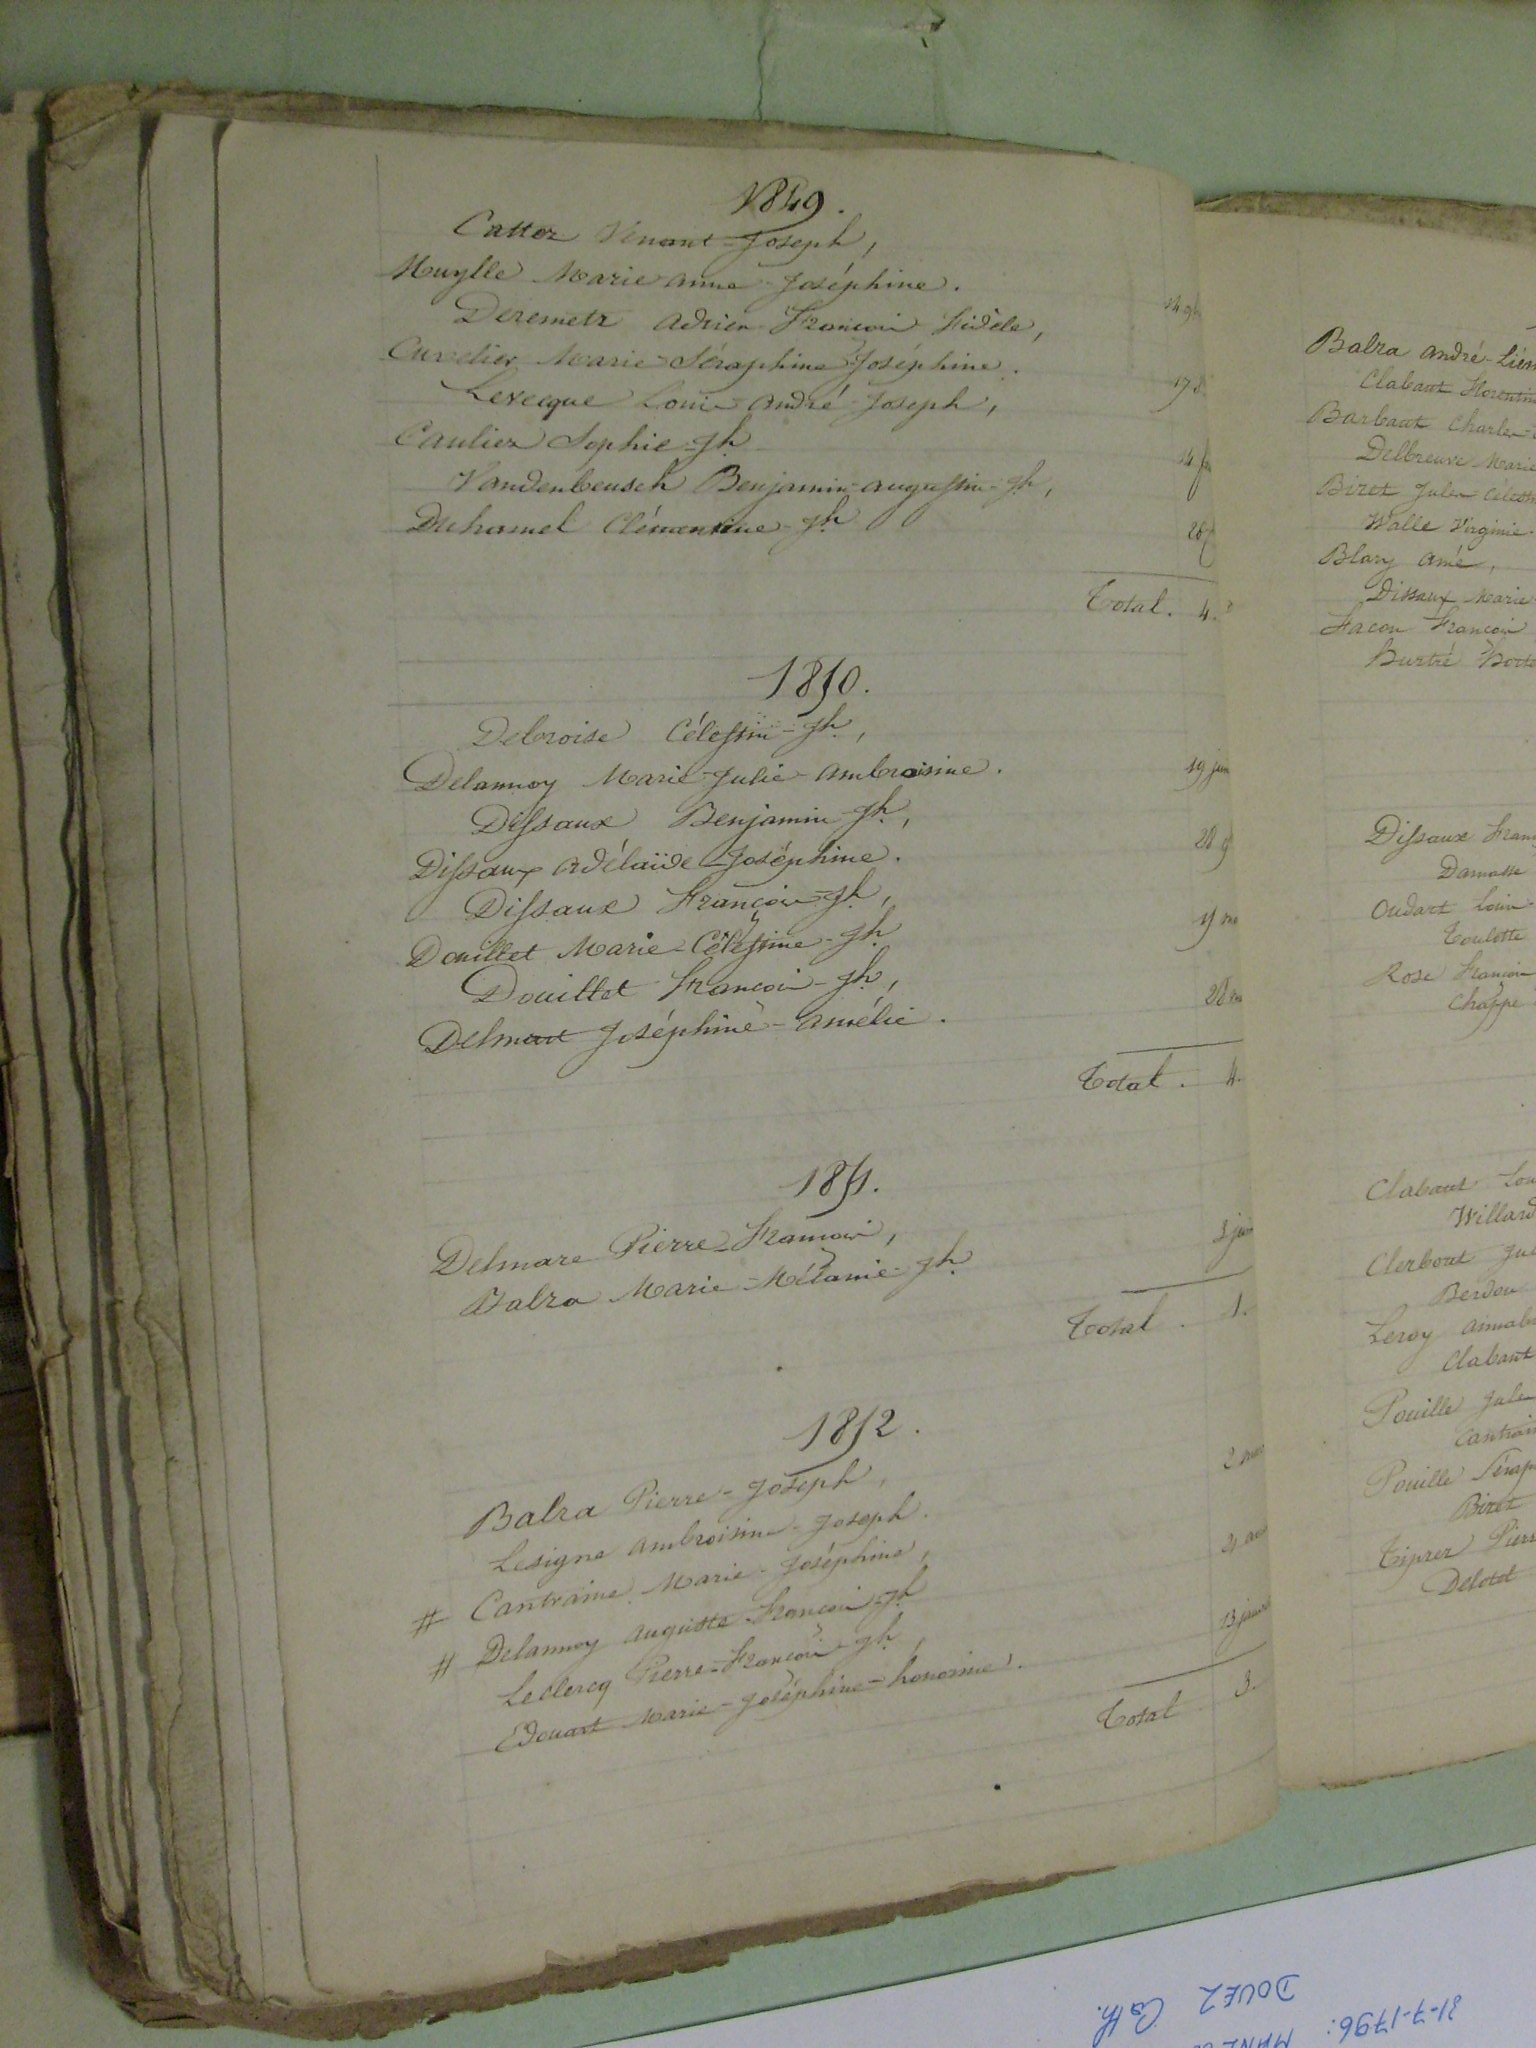 1849.
Cattez Venant - Joseph,
Huylle Marie anne - Joséphine.
Deremetz Adrien François Fidèle,
Cuvelier Marie Séraphine Joséphine.
17
Levecque Louis André - Joseph,
Cauliez Sophie - Jh
14
Vandenbeusch Benjamin - augustin - Jh,
Duhamel Clémentine - Jh
26
Total. 4.
1850.
Debroise Célestin - Jh,
Delannoy Marie - Julie - ambroisine.
19 juin
Dissaux Benjamin - Jh,
Dissaux adélaïde - Joséphine.
28
Dissaux François - Jh,
Douillet Marie - Célestine - Jh
Douillet François - Jh,
Delmart Joséphine - amélie.
28
Total. 4.
1851.
Delmare Pierre - François,
Balza Marie - Mélanie - Jh.
Total. 1.
1852.
Balza Pierre - Joseph,
Lesigne ambroisine - Joseph.
# Cantraine Marie - Joséphine,
# Delannoy auguste - François - Jh
Leclercq Pierre - François - Jh,
Edouart Marie - Joséphine - honorine.
13
Total 3.
Balza andré - Lié
Clabaut Florentin
Barbaut Charles
Delbreuve Marie
Biret Jules Célest
Walle Virginie
Blary Amé,
Dissaux Marie
Facon François
Burtré
Dissaux Fran
Damasse
Oudart Louis
Toulotte
Rose François
Chappe
Clabaut Lou
Willard
Clerbout Ju
Berdou
Leroy aimab
Clabaut
Pouille Jules
Cantrain
Pouille Sérap
Biret
Tiprez Pierr
Delotel
31-7-1796:
DOUEZ Cath.